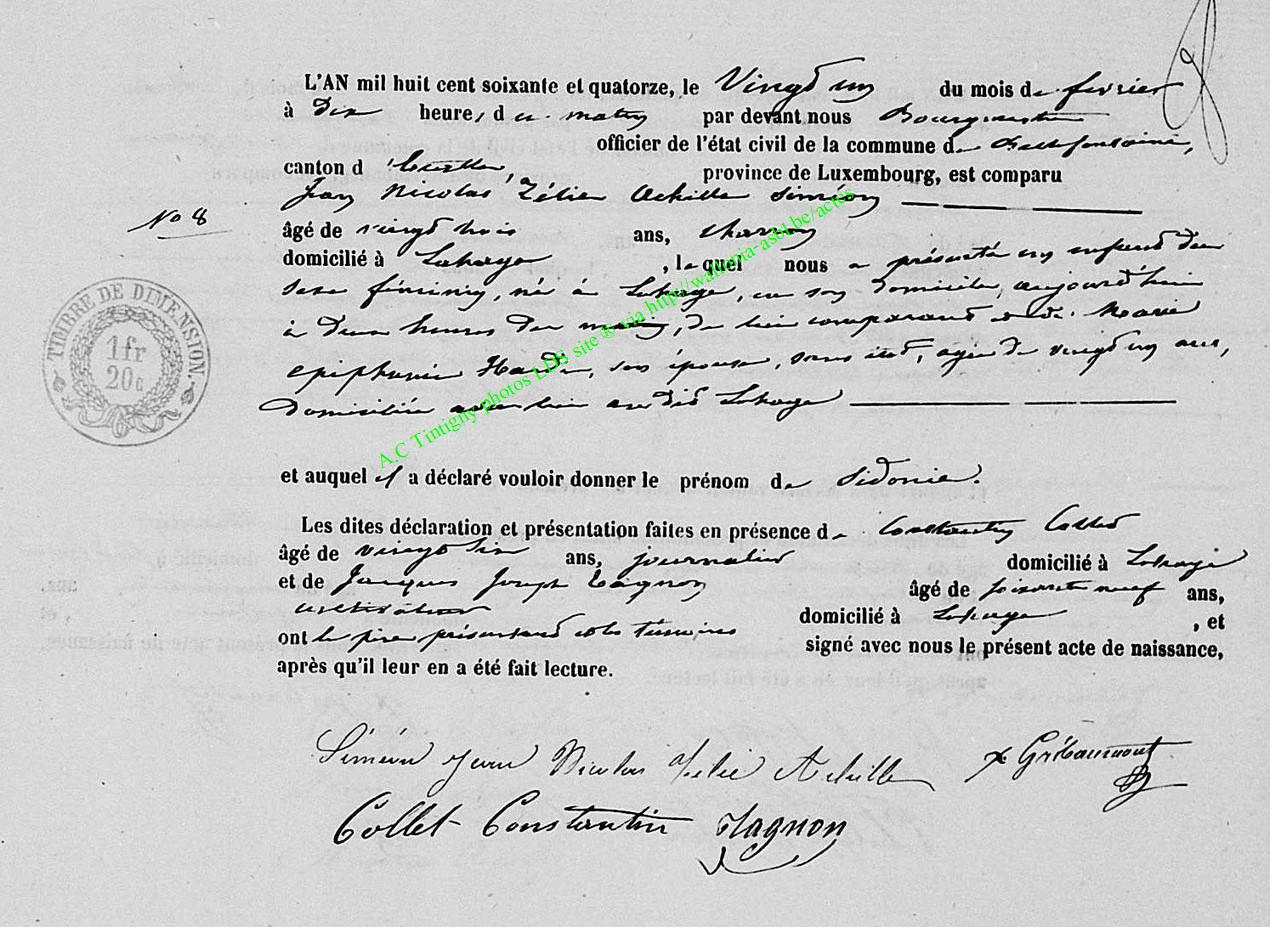 L'AN mil huit cent soixante et quatorze, le Vingt un du mois de fevrier
à Dix heures du matin par devant nous Bourgmestre
officier de l'état civil de la commune de Bellefontaine,
canton d' , province de Luxembourg, est comparu
Jean Nicolas Zélien Achille Siméon
No 8
âgé de vingt trois ans, charron
domicilié à Lahage, lequel nous a présenté un enfant du
sexe féminin, né à Lahage, en son domicile, aujourd'hui
à deux heures du matin, de lui comparant et de Marie
epiphanie , son épouse, sans état, agée de vingt un ans,
domiciliée avec lui au dit Lahage
TIMBRE DE DIMENSION
1 fr
20 c
A.C Tintigny photos LDS site ® via http://wallonia-asbl.be/actes
et auquel il a déclaré vouloir donner le prénom de Sidonie.
Les dites déclaration et présentation faites en présence de Constantin Collet
âgé de vingt six ans, journalier domicilié à Lahage
et de Jacques Joseph Tagnon âgé de soixante neuf ans,
cultivateur domicilié à Lahage, et
ont le père présentant et les témoins signé avec nous le présent acte de naissance,
après qu'il leur en a été fait lecture.
Siméon Jean Nicolas Achille Gribaumont
Collet Constantin Tagnon